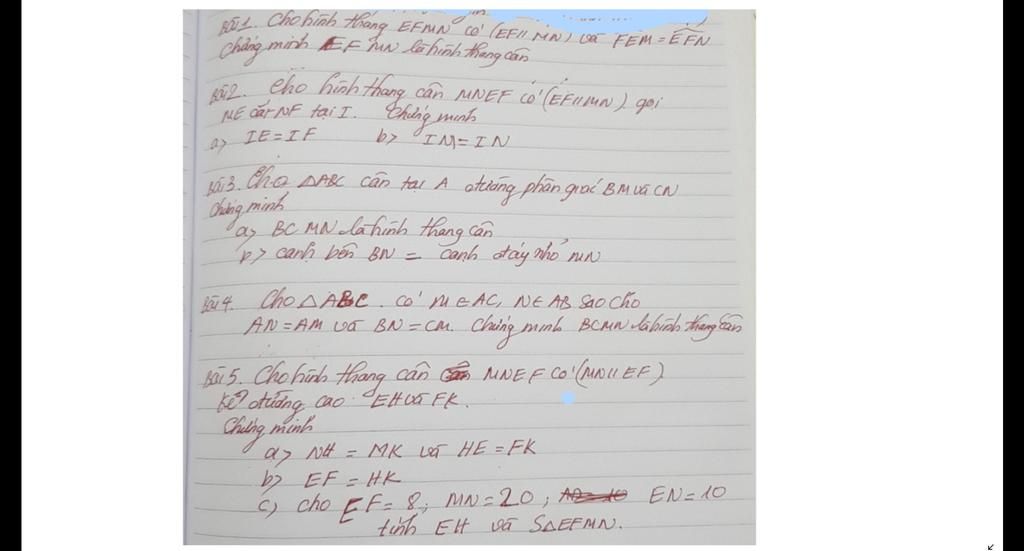 Bài 1. Cho hình thang EFMN có (EF // MN) và FEM = EFN
chứng minh EFMN là hình thang cân
Bài 2. Cho hình thang cân MNEF có (EF // MN) gọi
ME cắt NF tại I. Chứng minh
a> IE = IF b> IM = IN
Bài 3. Cho △ABC cân tại A đường phân giác BM và CN
Chứng minh
a> BCMN là hình thang cân
b> cạnh bên BN = cạnh đáy nhỏ MN
Bài 4. Cho △ABC. có M ∈ AC, N ∈ AB sao cho
AN = AM và BN = CM. Chứng minh BCMN là hình thang cân
Bài 5. Cho hình thang cân MNEF có (MN // EF)
Kẻ đường cao EH và FK.
Chứng minh
a> NH = MK và HE = FK
b> EF = HK
c> cho EF = 8; MN = 20; EN = 10
tính EH và S△EFMN.